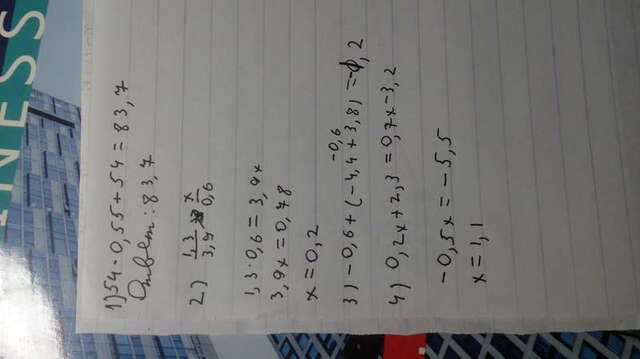 INESS
1) 54 · 0,55 + 54 = 83,7
Ответ: 83,7
2) 1,3/3,9 = x/0,6
1,3 · 0,6 = 3,9x
3,9x = 0,78
x = 0,2
-0,6
3) -0,6 + (-4,4 + 3,8) = -1,2
4) 0,2x + 2,3 = 0,7x - 3,2
-0,5x = -5,5
x = 1,1